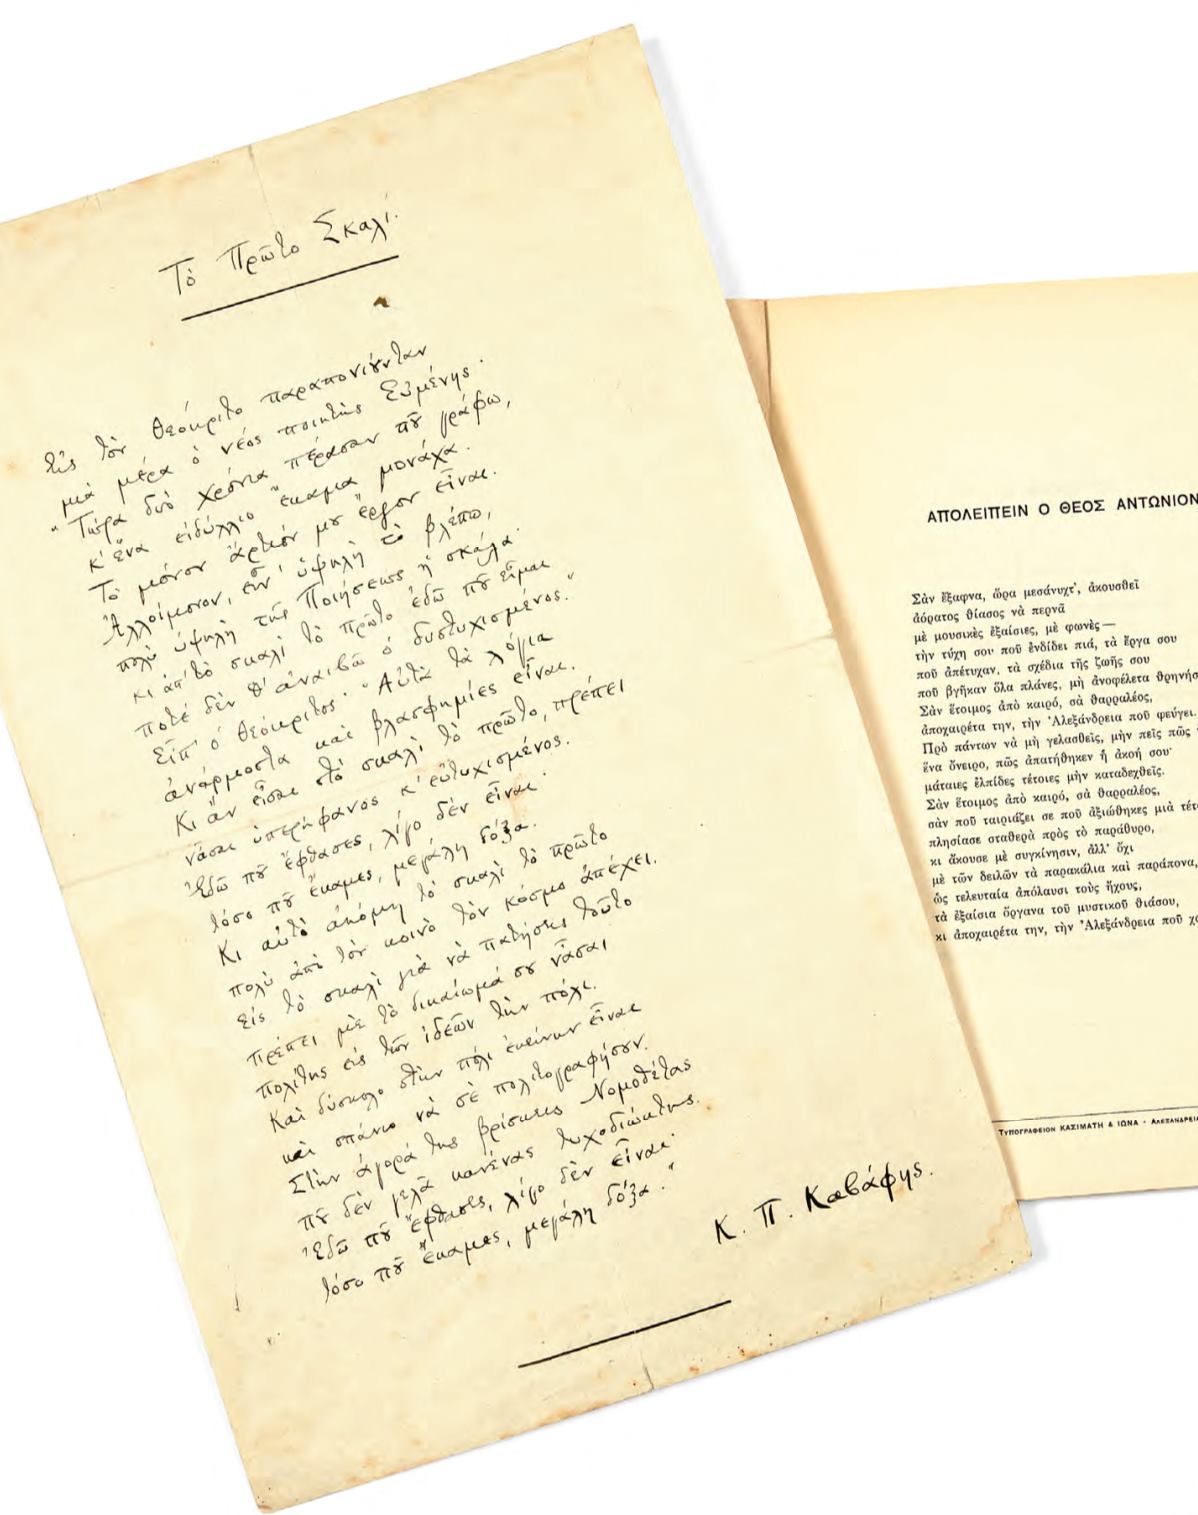 Τὸ Πρῶτο Σκαλί.
Εἰς τὸν Θεόκριτο παραπονιούνταν
μιὰ μέρα ὁ νέος ποιητὴς Εὐμένης·
"Τώρα δυὸ χρόνια πέρασαν ποῦ γράφω,
κ' ἕνα εἰδύλλιο ἔκαμα μονάχα.
Τὸ μόνον ἄρτιόν μου ἔργον εἶναι.
Ἀλλοίμονον, εἶν' ὑψηλὴ τὸ βλέπω,
πολὺ ὑψηλὴ τῆς Ποιήσεως ἡ σκάλα·
κι ἀπ' τὸ σκαλὶ τὸ πρῶτο ἐδῶ ποῦ εἶμαι
ποτὲ δὲν θ' ἀναιβῶ ὁ δυστυχισμένος."
Εἶπ' ὁ Θεόκριτος· "Αὐτὰ τὰ λόγια
ἀνάρμοστα καὶ βλασφημίες εἶναι.
Κι ἂν εἶσαι στὸ σκαλὶ τὸ πρῶτο, πρέπει
νἆσαι ὑπερήφανος κ' εὐτυχισμένος.
Ἐδῶ ποῦ ἔφθασες, λίγο δὲν εἶναι·
τόσο ποῦ ἔκαμες, μεγάλη δόξα.
Κι αὐτὸ ἀκόμη τὸ σκαλὶ τὸ πρῶτο
πολὺ ἀπὸ τὸν κοινὸ τὸν κόσμο ἀπέχει.
Εἰς τὸ σκαλὶ γιὰ νὰ πατήσεις τοῦτο
πρέπει μὲ τὸ δικαίωμά σου νἆσαι
πολίτης εἰς τῶν ἰδεῶν τὴν πόλι.
Καὶ δύσκολο στὴν πόλι ἐκείνην εἶναι
καὶ σπάνιο νὰ σὲ πολιτογραφήσουν.
Στὴν ἀγορά της βρίσκεις Νομοθέτας
ποῦ δὲν γελᾶ κανένας τυχοδιώκτης.
Ἐδῶ ποῦ ἔφθασες, λίγο δὲν εἶναι·
τόσο ποῦ ἔκαμες, μεγάλη δόξα."
Κ. Π. Καβάφης.
ΑΠΟΛΕΙΠΕΙΝ Ο ΘΕΟΣ ΑΝΤΩΝΙΟΝ
Σὰν ἔξαφνα, ὥρα μεσάνυχτ', ἀκουσθεῖ
ἀόρατος θίασος νὰ περνᾶ
μὲ μουσικὲς ἐξαίσιες, μὲ φωνὲς—
τὴν τύχη σου ποῦ ἐνδίδει πιά, τὰ ἔργα σου
ποῦ ἀπέτυχαν, τὰ σχέδια τῆς ζωῆς σου
ποῦ βγῆκαν ὅλα πλάνες, μὴ ἀνοφέλετα θρηνήσ
Σὰν ἕτοιμος ἀπὸ καιρό, σὰ θαρραλέος,
ἀποχαιρέτα την, τὴν Ἀλεξάνδρεια ποῦ φεύγει.
Πρὸ πάντων νὰ μὴ γελασθεῖς, μὴν πεῖς πῶς
ἕνα ὄνειρο, πῶς ἀπατήθηκεν ἡ ἀκοή σου·
μάταιες ἐλπίδες τέτοιες μὴν καταδεχθεῖς.
Σὰν ἕτοιμος ἀπὸ καιρό, σὰ θαρραλέος,
σὰν ποῦ ταιριάζει σε ποῦ ἀξιώθηκες μιὰ τέτ
πλησίασε σταθερὰ πρὸς τὸ παράθυρο,
κι ἄκουσε μὲ συγκίνησιν, ἀλλ' ὄχι
μὲ τῶν δειλῶν τὰ παρακάλια καὶ παράπονα,
ὡς τελευταία ἀπόλαυσι τοὺς ἤχους,
τὰ ἐξαίσια ὄργανα τοῦ μυστικοῦ θιάσου,
κι ἀποχαιρέτα την, τὴν Ἀλεξάνδρεια ποῦ χά
ΤΥΠΟΓΡΑΦΕΙΟΝ ΚΑΣΙΜΑΤΗ & ΙΩΝΑ · ΑΛΕΞΑΝΔΡΕΙΑ